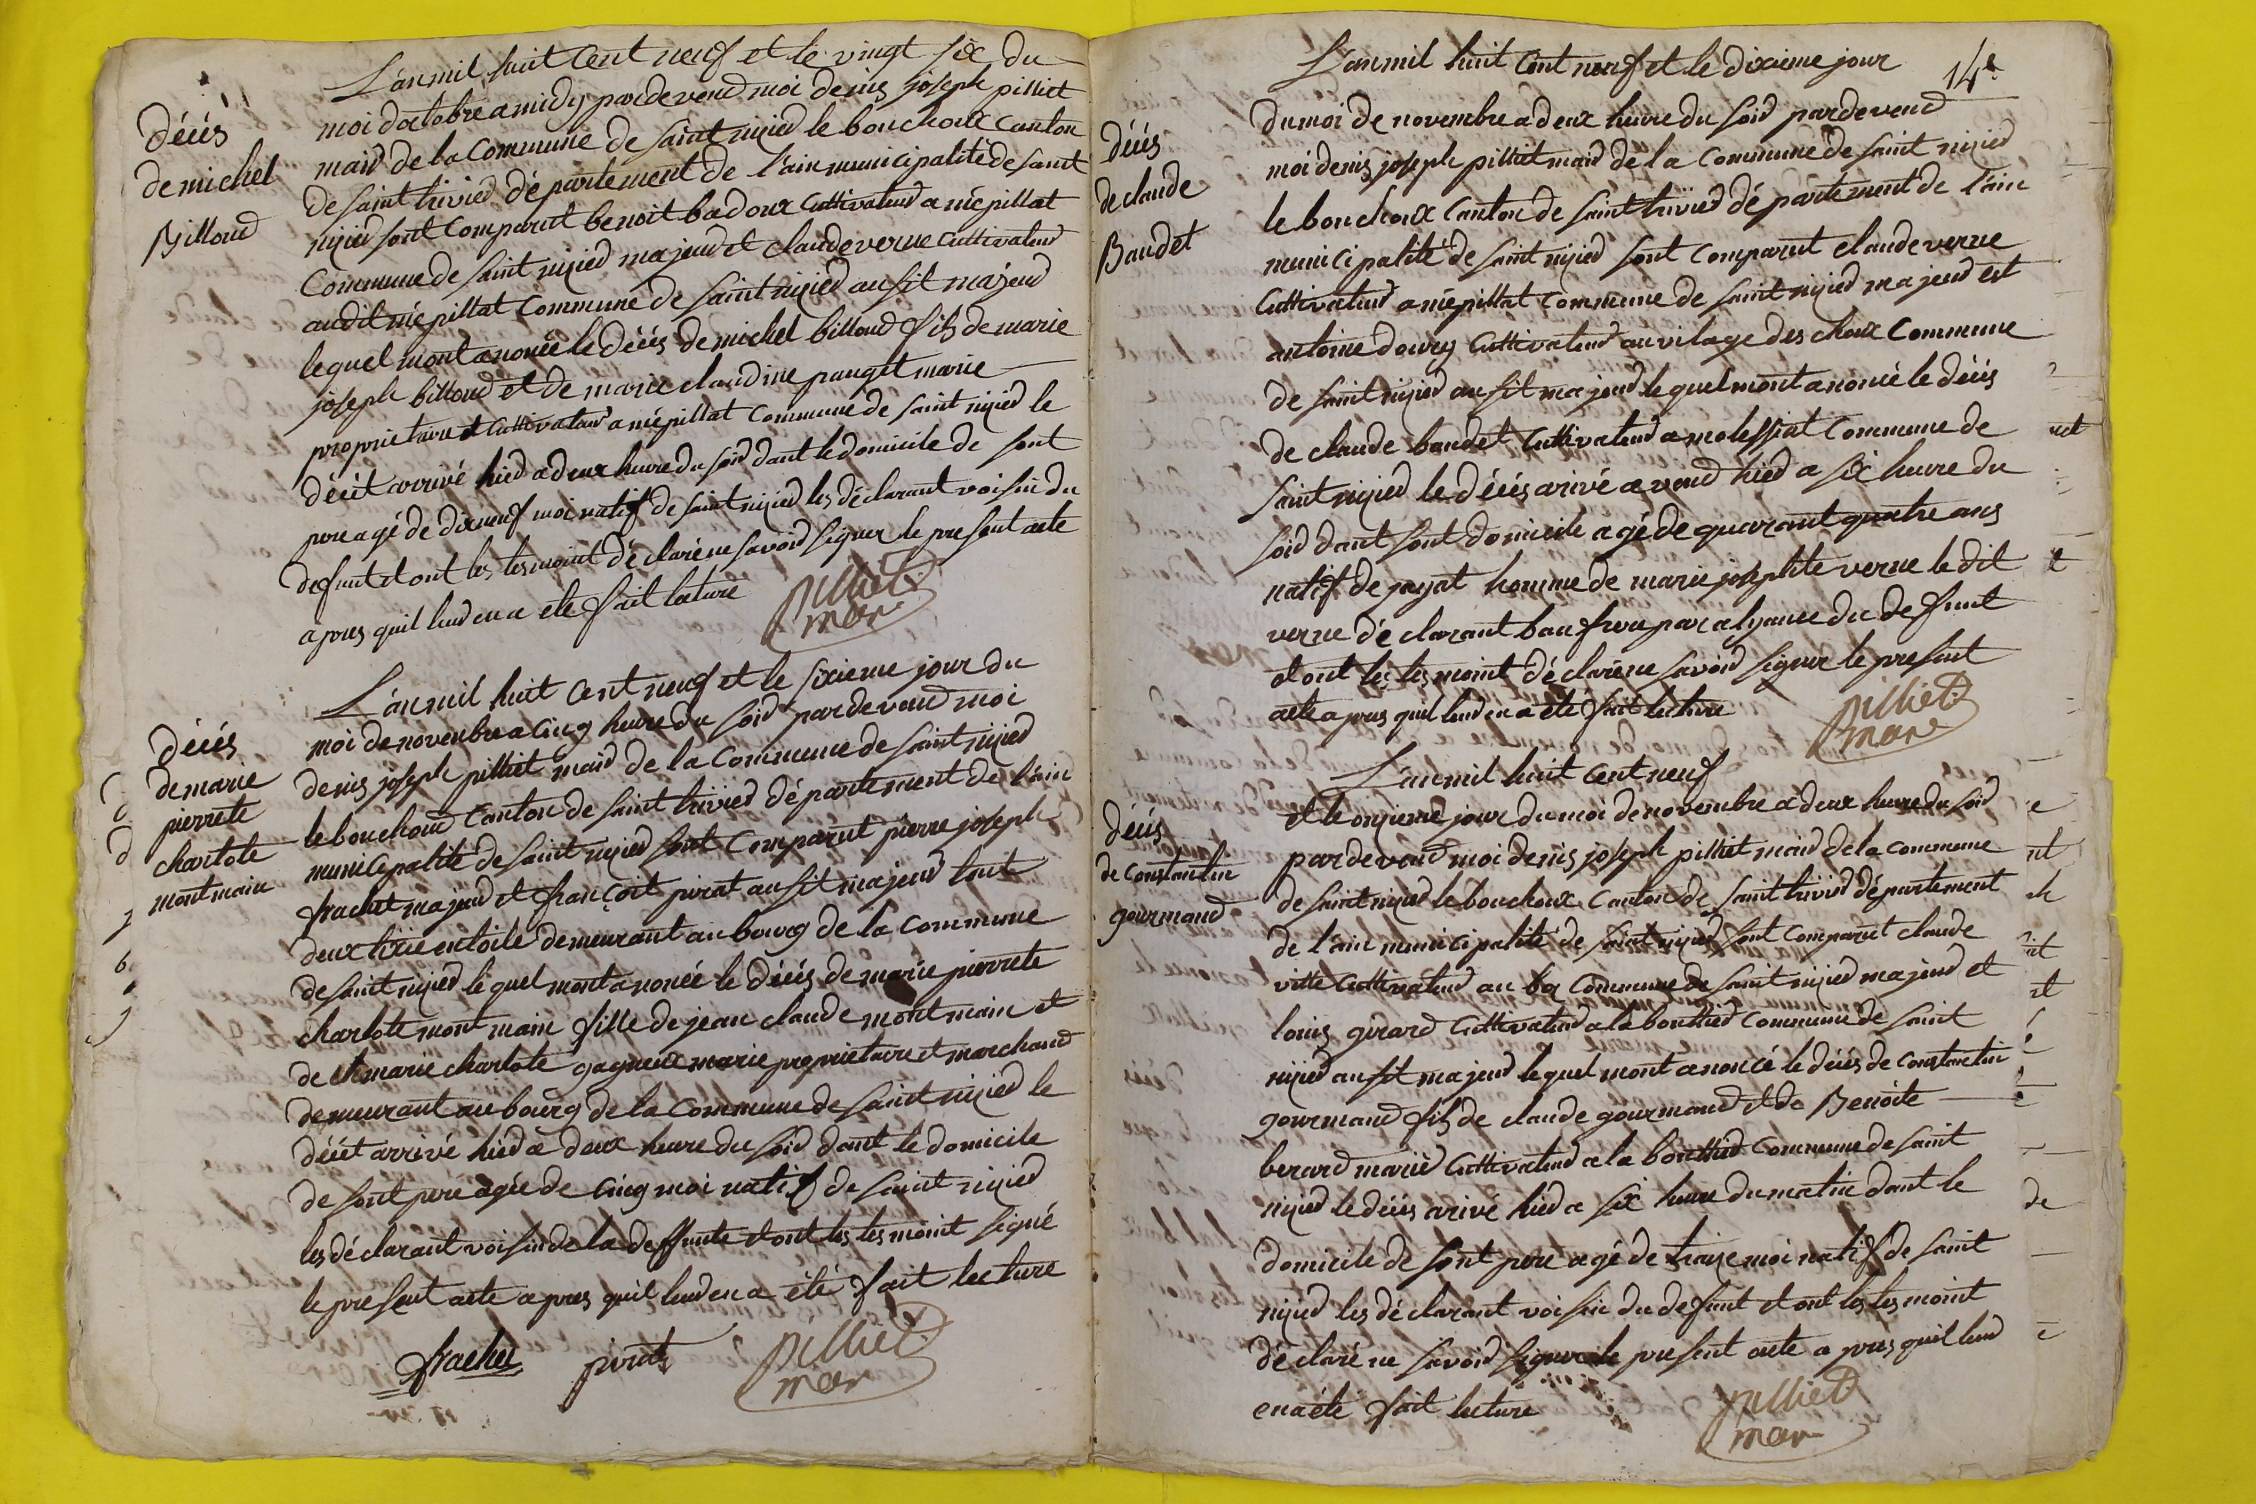 décés
de michel
Billoud
L'an mil huit cent neuf et le vingt six du
moi d'octobre a midy pardevend moi denis joseph pilliet
maid de la Commune de saint nizied le bouchoux canton
de saint trivied département de l'ain municipalité de saint
nizied sont Comparut benoit badoux Cultivateud a mépillat
Commune de saint nizied majeud et claude verne Cultivateud
audit mépillat Commune de saint nizied ausit majeud
lequel mont anoncé le décés de michel billoud fils de marie
joseph billoud et de marie claudine pauget marie
proprietaire et Cultivateud a mépillat Commune de saint nizied le
décét arrivé hied a deux heure du soid dant le domicile de sont
pere agé de dixneuf moi natif de saint nizied les déclarant voisin du
defunt et ont les tesmoint déclaré ne savoid signer le present acte
apres quil leud en a ete fait lecture
pilliet
mar
décés
de marie
pierrete
charlote
montmain
L'an mil huit cent neuf et le sixieme jour du
moi de novembre a cinq heure du soid pardevend moi
denis joseph pilliet maid de la Commune de saint nizied
le bouchoud Canton de saint trivied département de l'ain
municipalité de saint nizied sont Comparut pierre joseph
frachet majeud et françoit pirat ausit majeud tout
deux tixie en toile demeurant au bourg de la Commune
de saint nizied lequel mont anoncé le décés de marie pierrete
charlote montmain fille de jean claude montmain et
de marie charlote gagneux marie proprietaire et marchand
demeurant au bourg de la Commune de saint nizied le
décét arrivé hied a deux heure du soid dant le domicile
de sont pere agée de cinq moi natif de saint nizied
les déclarant voisin de la deffunte et ont les tesmoint signé
le present acte apres quil leud en a été fait lecture
frachet pirat pilliet
mar
14e
décés
de claude
Baudet
L'an mil huit cent neuf et le dixieme jour
du moi de novembre a deux heure du soid pardevend
moi denis joseph pilliet maid de la Commune de saint nizied
le bouchoux Canton de saint trivied département de l'ain
municipalité de saint nizied sont Comparut claude verne
Cultivateud a mépillat Commune de saint nizied majeud est
antoine dourcy Cultivateud au vilage des choux Commune
de saint nizied ausit majeud lequel mont anoncé le décés
de claude baudet Cultivateud a molessiat Commune de
saint nizied le décés arivé avend hied a six heure du
soid dant sont domicile agé de quarant quatre ans
natif de jayat homme de marie josephte verne le dit
verne déclarant bau frere par alyance du defunt
et ont les tesmoint déclaré ne savoid signer le present
acte apres quil leud en a été fait lecture
pilliet
mar
décés
de Constantin
gourmand
L'an mil huit cent neuf
et le onzieme jour du moi de novembre a deux heure du soid
pardevend moi denis joseph pilliet maid de la commune
de saint nizied le bouchoux Canton de saint trivied département
de l'ain municipalité de saint nizied sont comparut claude
vitte Cultivateud au Commune de saint nizied majeud et
louis girard Cultivateud a la bouttied Commune de saint
nizied ausit majeud lequel mont anoncé le décés de constantin
gourmand fils de claude gourmand et de Benoite
berard marie Cultivateud a la bouttied Commune de saint
nizied le décés arivé hied a six heure du matin dant le
domicile de sont pere agé de traize moi natif de saint
nizied les déclarant voisin du defunt et ont les tesmoint
déclaré ne savoid signer le present acte apres quil leud
en a été fait lecture
pilliet
mar